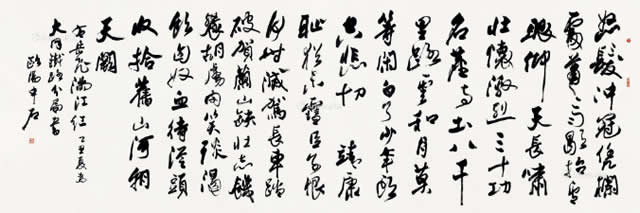 怒髮冲冠凭欄
處瀟瀟雨歇抬望
眼仰天長嘯
壯懷激烈三十功
名塵与土八千
里路雲和月莫
等閑白了少年頭
空悲切 靖康
耻猶未雪臣子恨
何時滅駕長車踏
破賀蘭山缺壯志饑
餐胡虜肉笑談渴
飲匈奴血待從頭
收拾舊山河朝
天闕
右岳飛滿江紅 丁丑夏为
大同鐵路分局書
歐陽中石